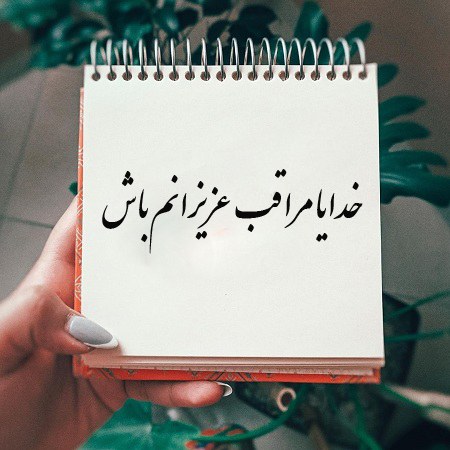 خدایا مراقب عزیزانم باش